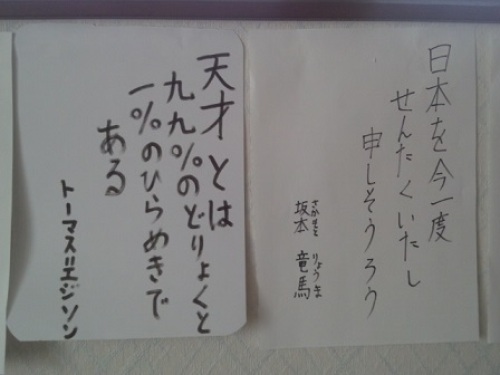 日本を今一度
せんたくいたし
申しそうろう
坂本 竜馬
さかもと りょうま
天才とは
九九%のどりょくと
一%のひらめきで
ある
トーマス=エジソン